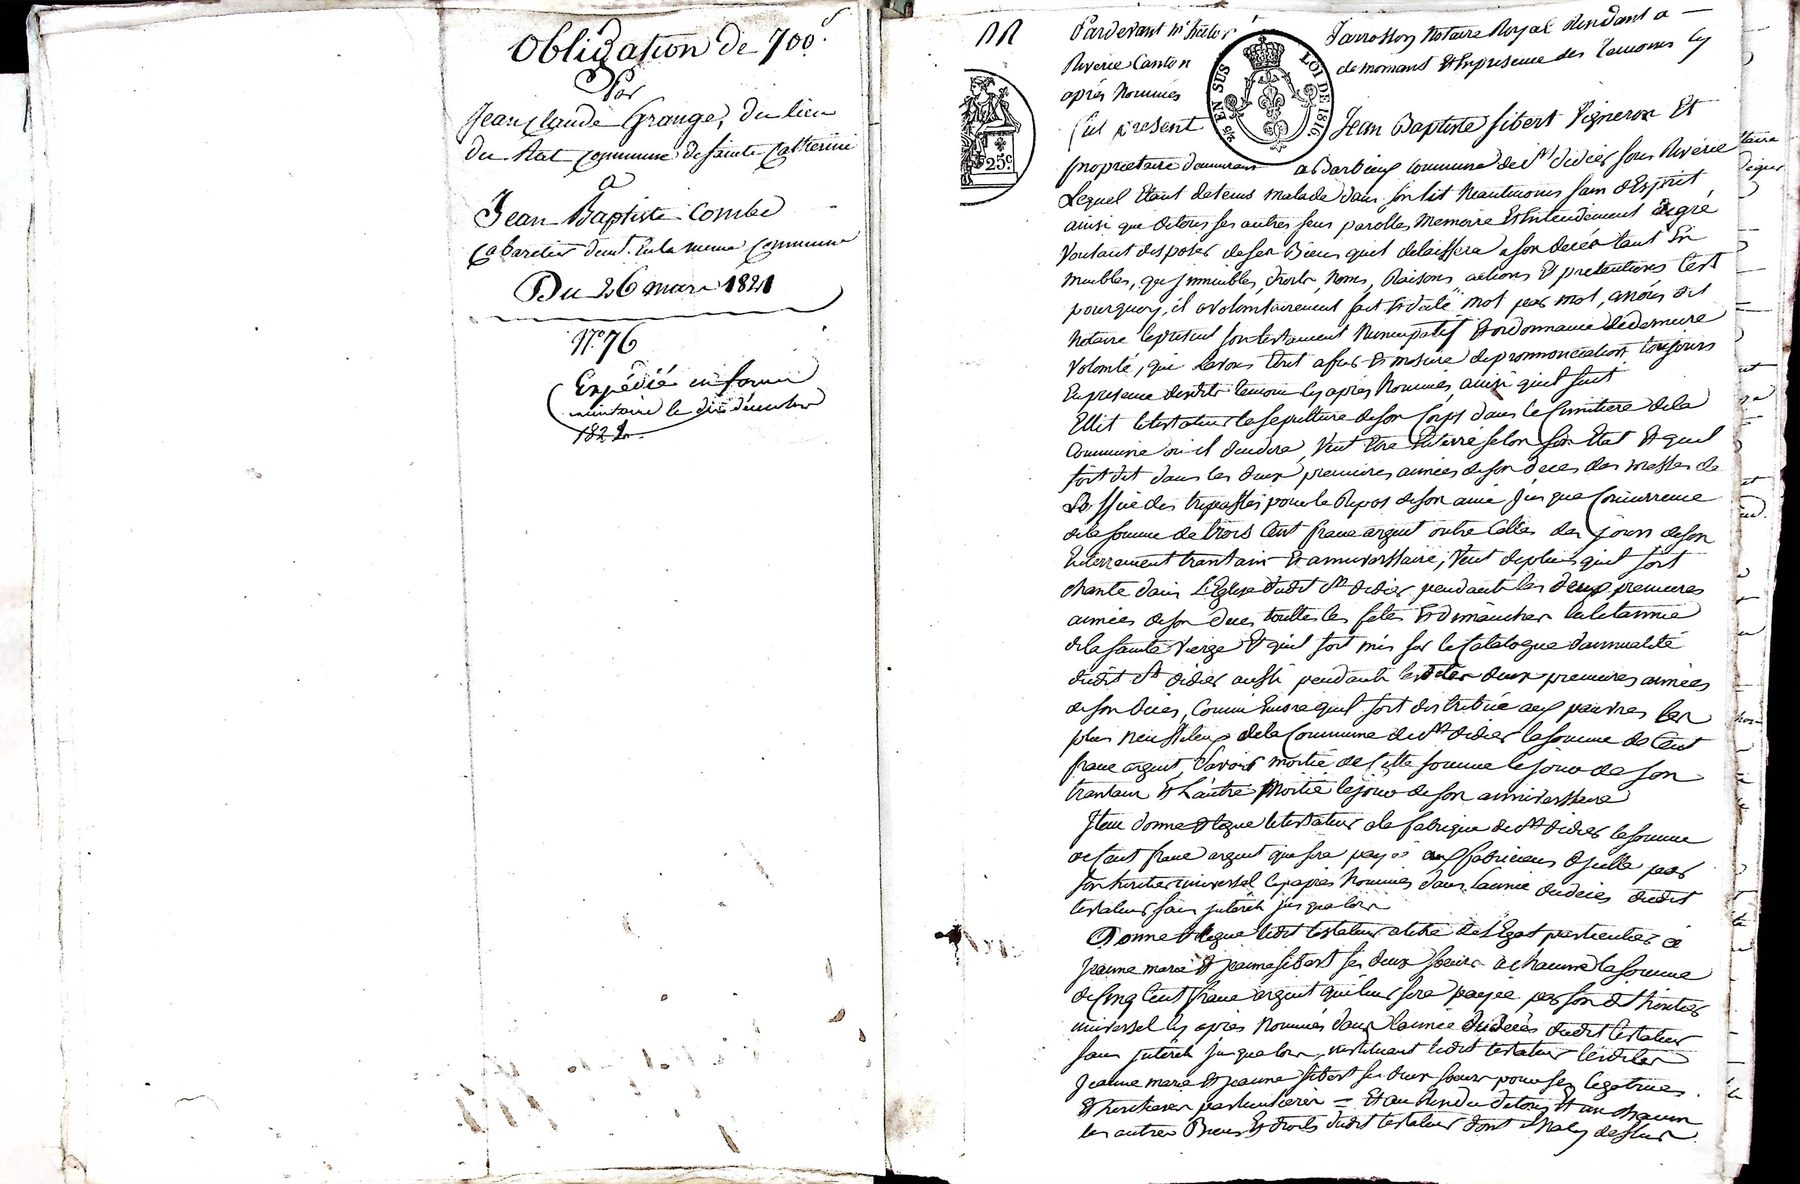 Obligation de 700f.
Par
Jean Claude Grange, du lieu
du Flat commune de Sainte Catherine
a
Jean Baptiste Combe
Cabaretier demt. en la meme Commune
Du 26 mars 1821
N° 76
Expédié en forme
minutaire le dix décembre
1822.
Pardevant me
Jarrosson Notaire Royal résidant a
Riverie Canton
de mornant Et En presence des temoins cy
après Nommés
EN SUS
LOI DE 1816
25c.
fut present
Jean Baptiste Sibert Vigneron Et
proprietaire demeurant a Barbieux commune de St didier sous Riverie
Lequel Etant detenus malade dans son lit neantmoins sain d'Esprit
ainsi que de tous ses autres sens parolles Memoire Et Entendement de gré
Voulant disposer de ses Biens quil delaissera a son decés tant En
meubles, que immeubles, droits, Noms, Raisons actions Et pretentions c'est
pourquoy, il a volontairement fait Et dicté mot par mot, a nous dit
Notaire le présent son testament Nuncupatif Et ordonnance de derniere
Volonté, que
En presence desdits temoins cy après Nommés, ainsi quil suit
Ellit le testateur la sepulture de son Corps dans le Cimitiere de la
Commune ou il decedera, Veut Etre Enterré selon son Etat Et quil
soit dit dans les deux premieres années de son deces des messes de
pour le Repos de son ame jusque Concurrence
de la somme de trois Cent franc argent outre Celles des jours de son
Enterrement trantain Et anniverssaire, Veut de plus quil soit
chanté dans l'Eglise dudit St didier pendant les deux premieres
années de son deces touttes les fetes Et dimanches la letannie
de la sainte Vierge Et quil soit mis sur le Catalogue d'annualité
dudit St didier aussi pendant lesdites deux premieres années
de son déces, Comme Encore quil soit distribuée aux pauvres les
plus neussiteux de la Commune de St didier la somme de Cent
franc argent, savoir moitié de Cette somme le jour de son
trantain Et L'autre Moitié le jour de son anniverssaire
Item donne Et legue le testateur a la fabrique de St didier la somme
de Cent franc argent que sera payée aux fabriciens d'icelle par
son heritier universel cy après Nommés dans l'année du deces dudit
testateur sans interêt jusqualors
Donne Et legue ledit testateur a titre de Legat particulier a
Jeanne marie Et jeanne Sibert ses deux soeurs a chacune la somme
de Cinq Cent franc argent qui leur sera payée par son dit héritier
universel cy après Nommés dans l'année du décès dudit testateur
sans interêt jusqualors, instituant ledit testateur lesdites
Jeanne marie Et jeanne Sibert ses deux soeurs pour ses légatrices
Et heritieres particulieres = Et au Residu de tous Et un chacun
les autres Biens Et droits dudit testateur dont il n'a cy dessus